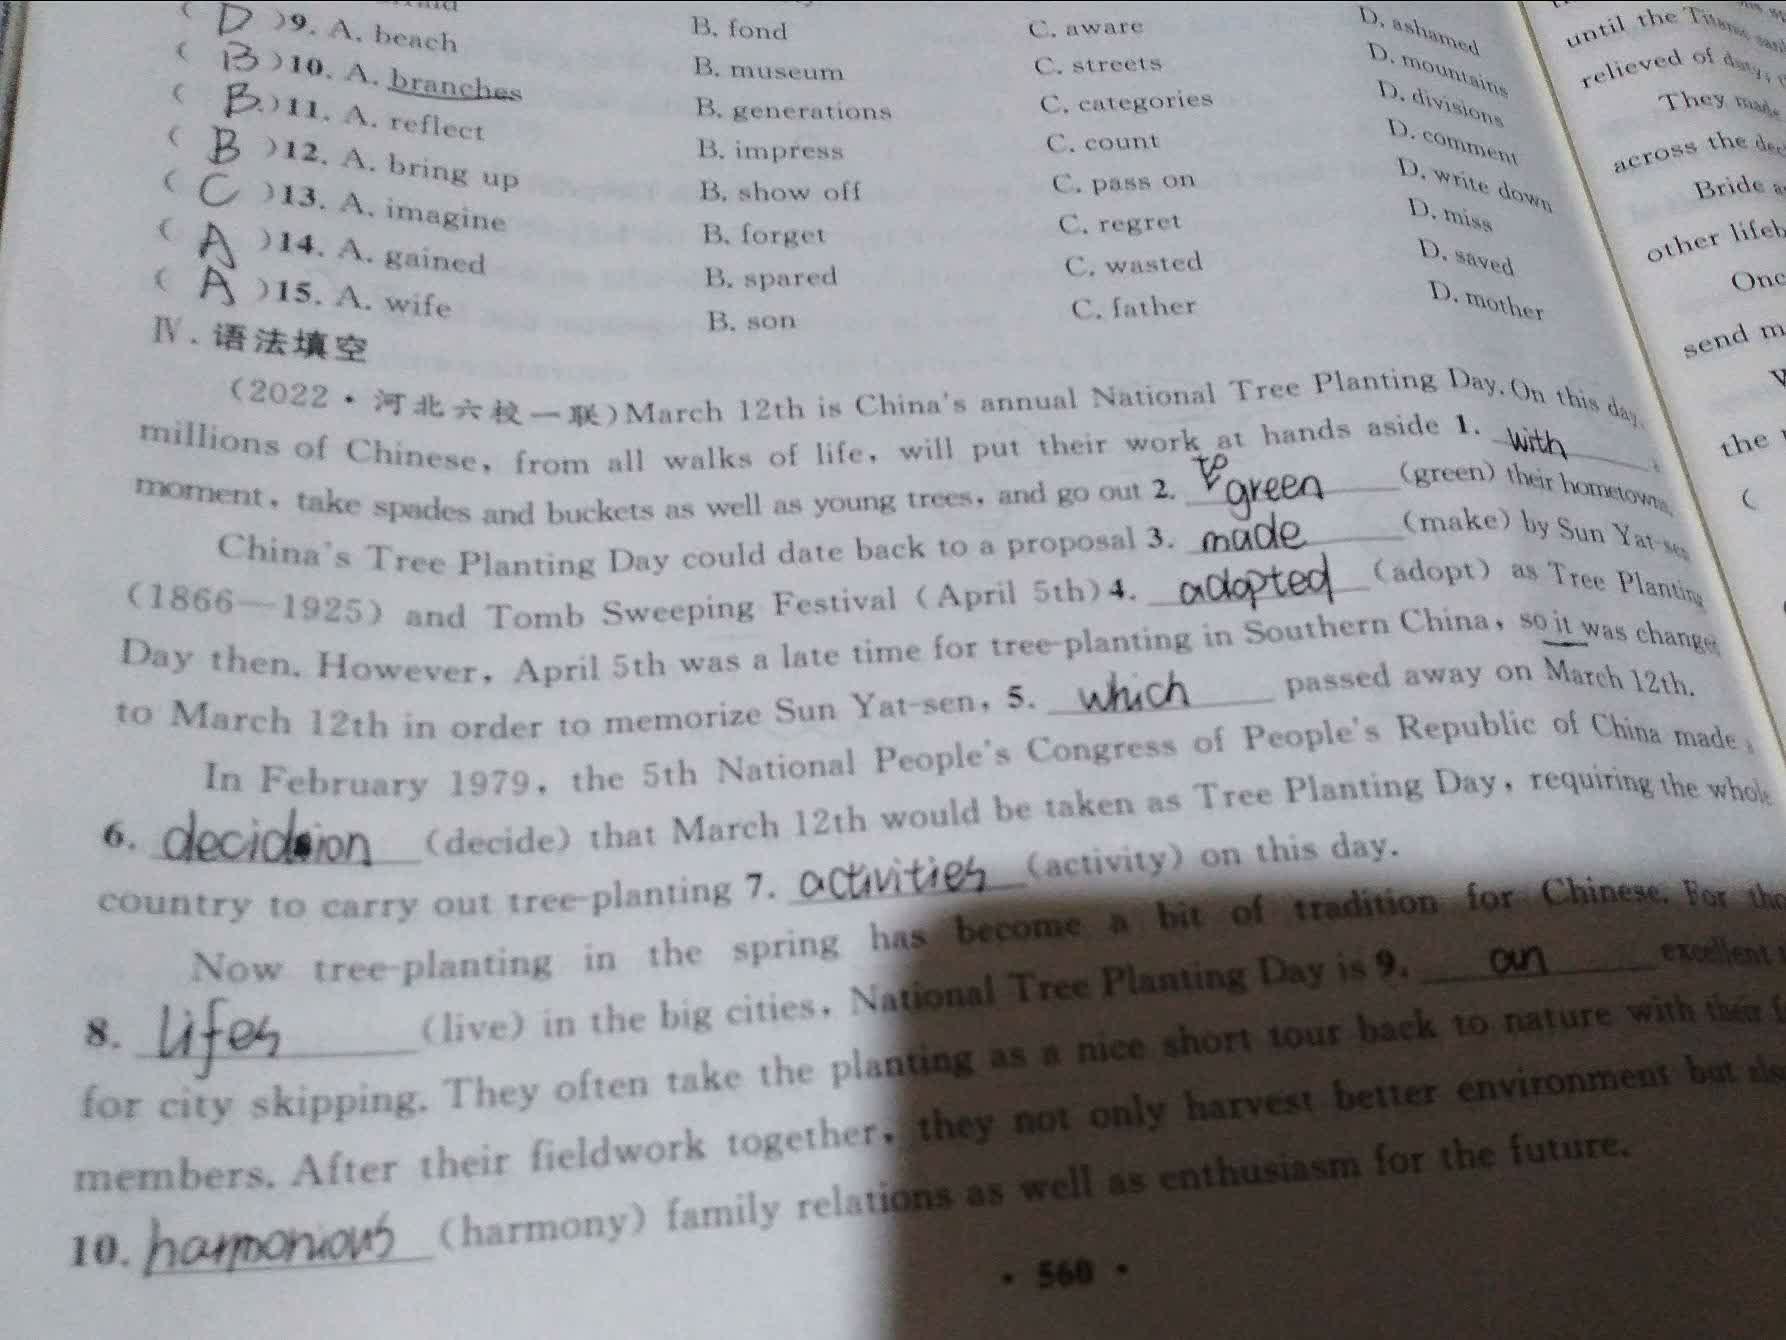 ( D )9. A. beach B. fond C. aware D. ashamed
( B )10. A. branches B. museum C. streets D. mountains
( B )11. A. reflect B. generations C. categories D. divisions
( B )12. A. bring up B. impress C. count D. comment
( C )13. A. imagine B. show off C. pass on D. write down
( A )14. A. gained B. forget C. regret D. miss
( A )15. A. wife B. spared C. wasted D. saved
B. son C. father D. mother
Ⅳ. 语法填空
(2022·河北六校一联)March 12th is China's annual National Tree Planting Day. On this day,
millions of Chinese, from all walks of life, will put their work at hands aside 1. with
moment, take spades and buckets as well as young trees, and go out 2. to green (green) their hometowns.
China's Tree Planting Day could date back to a proposal 3. made (make) by Sun Yat-sen
(1866—1925) and Tomb Sweeping Festival (April 5th)4. adopted (adopt) as Tree Planting
Day then. However, April 5th was a late time for tree-planting in Southern China, so it was changed
to March 12th in order to memorize Sun Yat-sen, 5. which passed away on March 12th.
In February 1979, the 5th National People's Congress of People's Republic of China made
6. decidsion (decide) that March 12th would be taken as Tree Planting Day, requiring the whole
country to carry out tree-planting 7. activities (activity) on this day.
Now tree-planting in the spring has become a bit of tradition for Chinese. For
8. lifes (live) in the big cities, National Tree Planting Day is 9. an excellent
for city skipping. They often take the planting as a nice short tour back to nature with their
members. After their fieldwork together, they not only harvest better environment but
10. harmonious (harmony) family relations as well as enthusiasm for the future.
· 560 ·
until the Titanic
relieved of
They made
across the
Bride
other
send
the
(